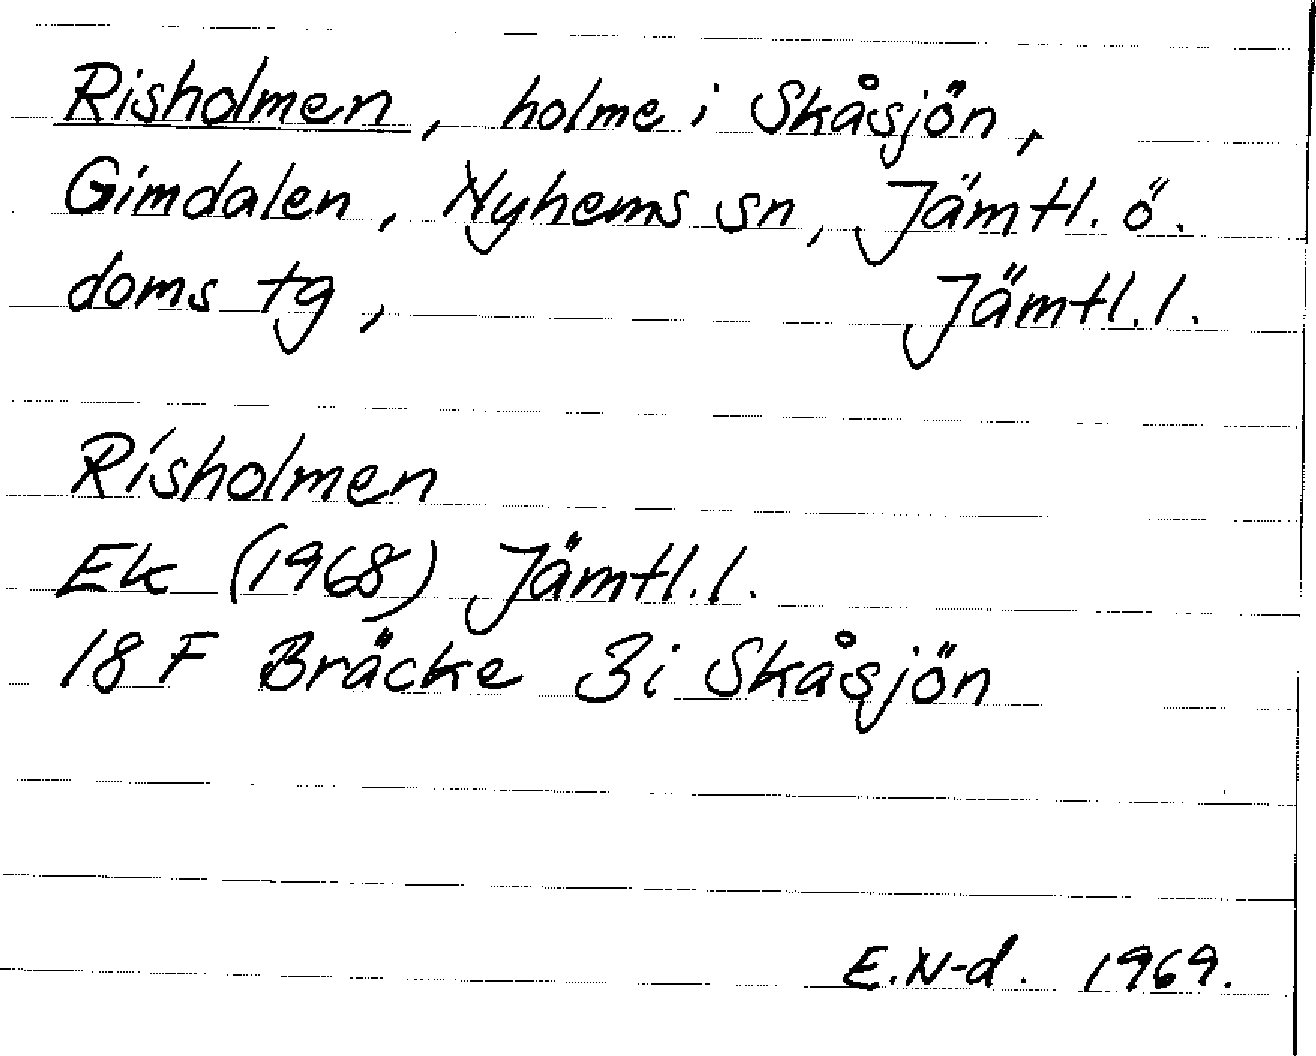 Risholmen, holme i Skåsjön,
Gimdalen, Nyhems sn, Jämtl. ö.
doms tg, Jämtl. l.
Risholmen
Ek (1968) Jämtl. l.
18 F Bräcke 3i Skåsjön
E. N-d. 1969.